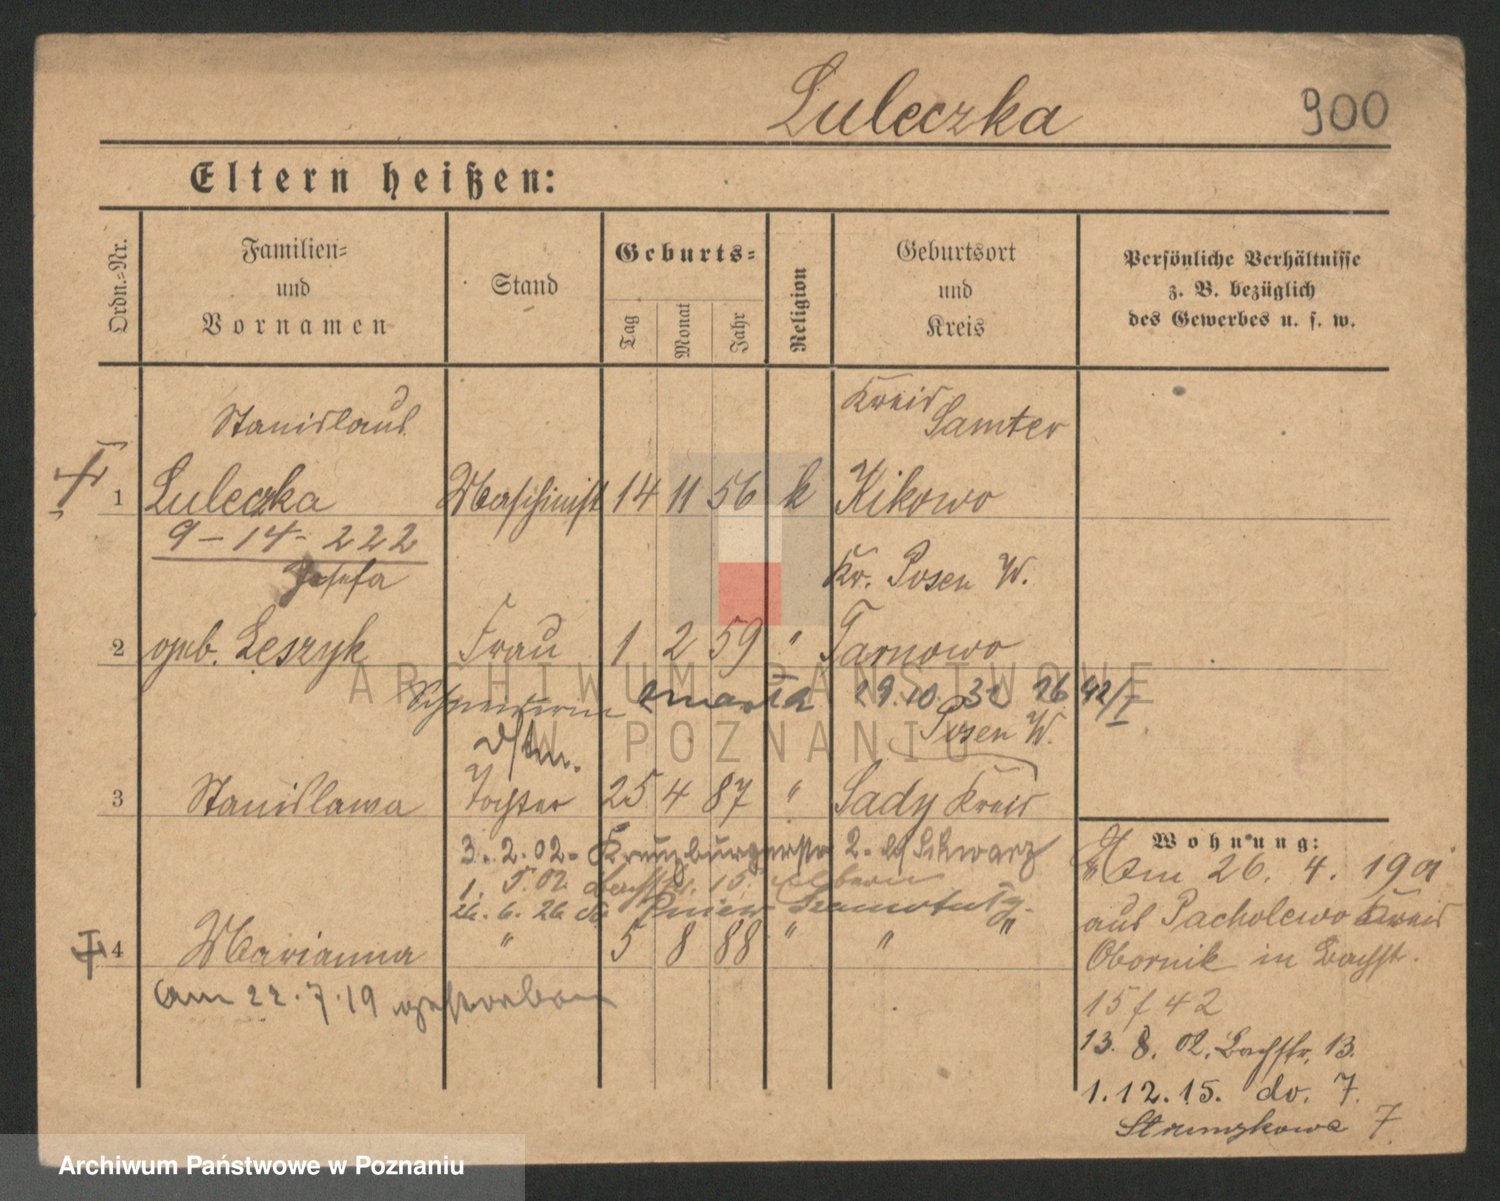 Luleczka 900
Eltern heißen:
Ordn.=Nr.
Familien=
und
Vornamen
Stand
Geburts=
Tag
Monat
Jahr
Religion
Geburtsort
und
Kreis
Persönliche Verhältnisse
z. B. bezüglich
des Gewerbes u. s. w.
Stanislaus
Kreis
Samter
1 Luleczka Maschinist 14 11 56 k Kikowo
9 - 14 - 222
Josefa
Kr. Posen W.
2 geb. Leszyk Frau 1 2 59 " Tarnowo
zmarła 29.10. 31
Posen W.
3 Stanislawa Tochter 25 4 87 " Sady Kreis
3. 2. 02. Kreuzburgerstr 2. Schwarz
1. 5. 02 15. Eltern
26. 6. 26 Pniew
4 Marianna " 5 8 88 " " "
am 22. 7. 19 gestorben
Wohnung:
Am 26. 4. 1901
aus Pacholewo Kreis
Obornik in Bachst.
15 f 42
13. 8. 02. Bachstr. 13.
1. 12. 15. do. 7.
Strumykowa 7.
ARCHIWUM PAŃSTWOWE
W POZNANIU
Archiwum Państwowe w Poznaniu